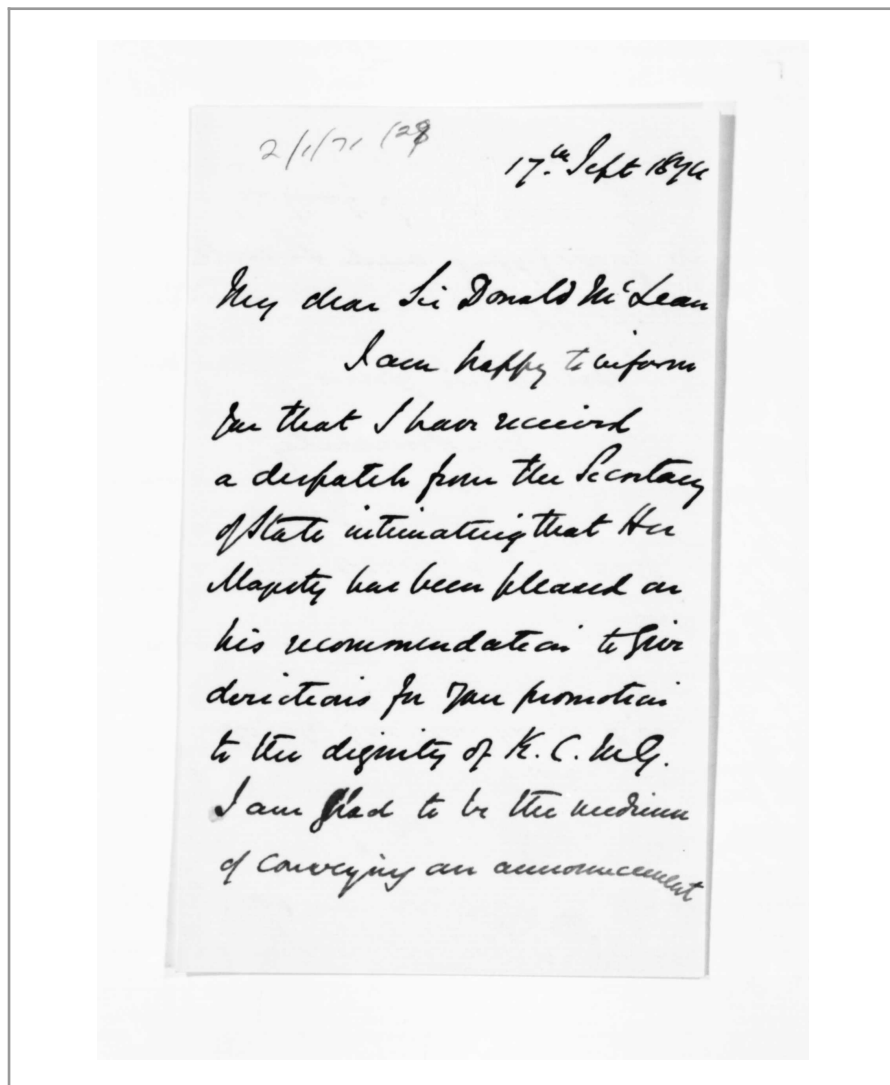 2/1/71 (28
17th Sept 1874
My dear Sir Donald McLean
I am happy to inform
you that I have received
a despatch from the Secretary
of State intimating that Her
Majesty has been pleased on
his recommendation to give
directions for your promotion
to the dignity of K.C.M.G.
I am glad to be the medium
of conveying an announcement